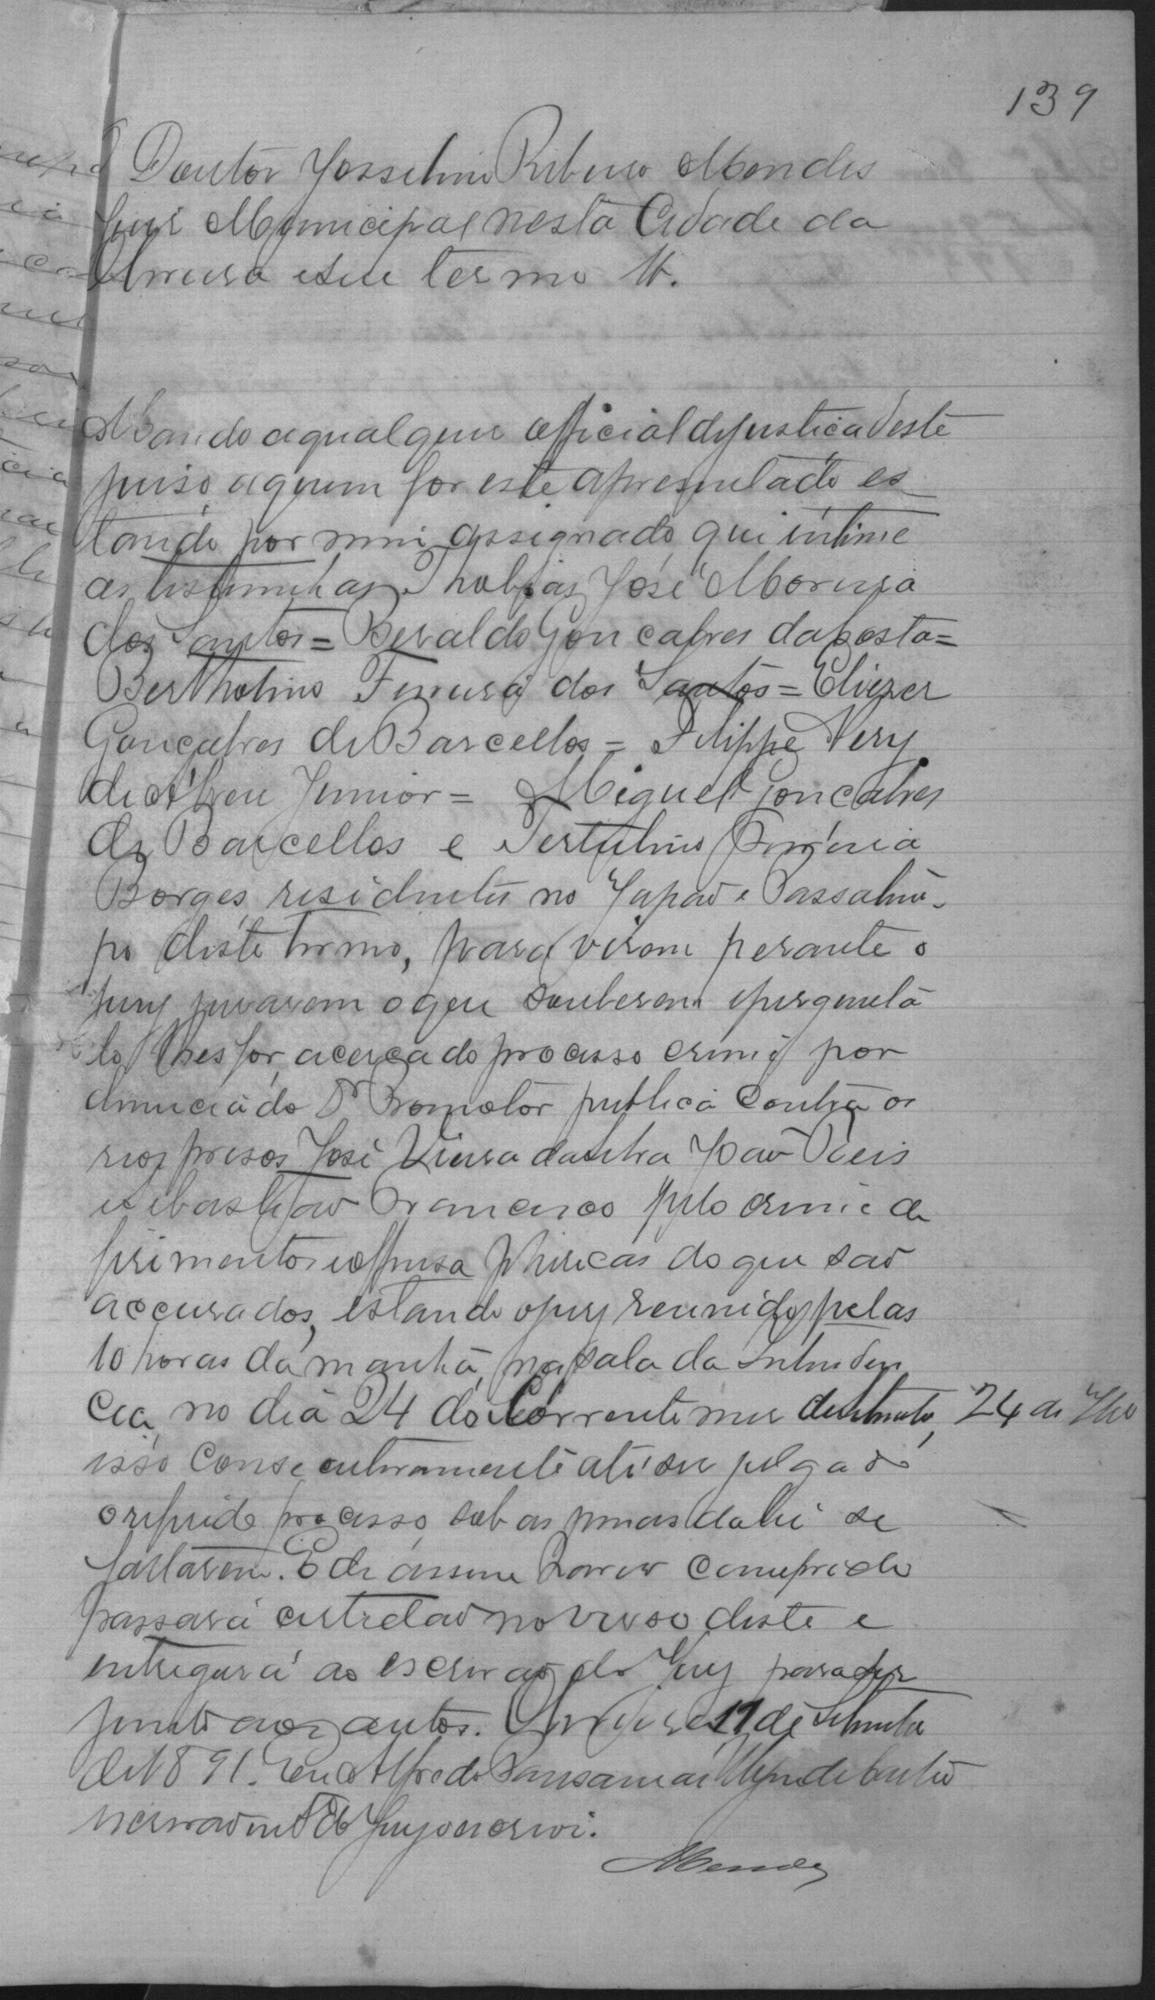 139
O Doutor Josselino Ribeiro Mendes
Juiz Municipal nesta Cidade da
e seu termo &.
Mando a qualquer official de justica deste
juiso a quem for este apresentado es
tando por mim assignado qui intime
as testimunhas Thobias José Moreira
dos Santos = Beraldo Gonçalves da Costa =
Bertholino Ferreira dos Santos = Eliezer
Gonçalves de Barcellos = Filippe Nery
de Abreu Junior = Miguel Gonçalves
de Barcellos e Tertulino
Borges residentes no Japão e Passatem-
po deste termo, para virem perante o
jury jurarem o que souberem e perguntá
do lhes for, acerca do processo crime por
denuncia do Dr Promotor publica contra os
reos presos José Vieira da Silva João Reis
e Sebastião Francisco pelo crime de
ferimentos e offensa phisicas do que são
accusados, estando o jury reunido pelas
10 horas da manhã, na sala da Intenden
cia, no dia 24 do Corrente mes de 24 de
isso consecutivamente até ser julgado
o referido processo sob as penas da lei se
faltarem. E de assim haver comprido
passará certidão no verso deste e
entregará ao escrivão do Jury para ser
junto aos autos. 11 de Setembro
de 1891. Eu Alfredo
escrivão do Jury o escrivi.
Mendes